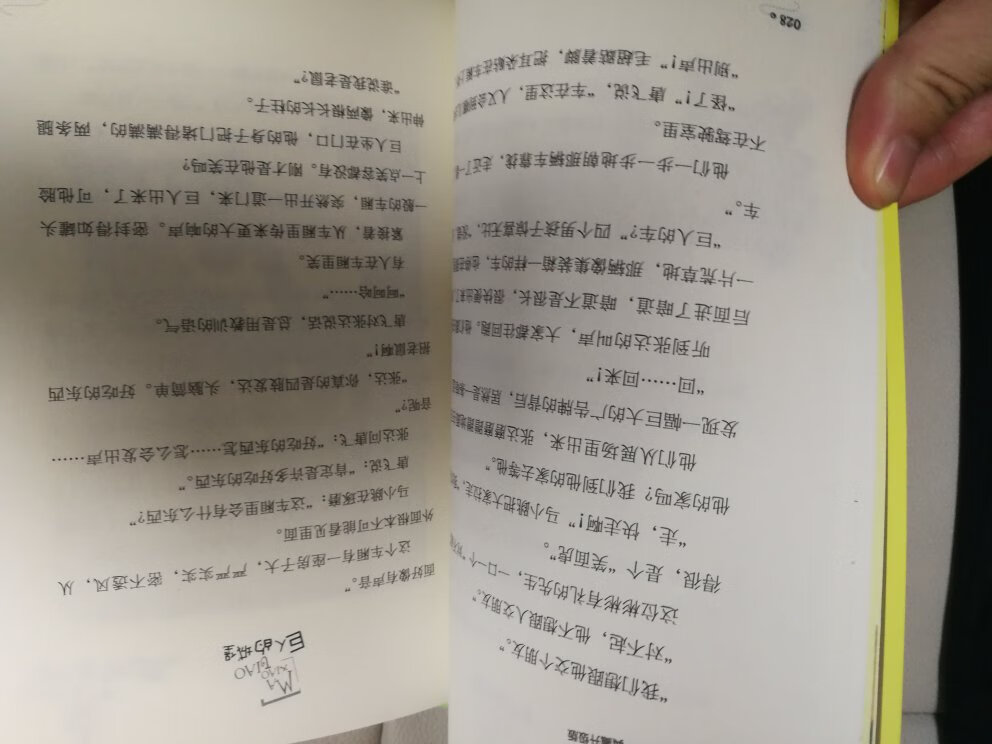 藏升级版
"我们想跟他交个朋友。"
"对不起，他不想跟人交朋友。"
这位彬彬有礼的先生，一口一个
得很，是个"笑面虎"。
"走，快走啊！"马小跳把大家拉走，
他的家吗？我们到他的家去等他。"
他们从展场里出来，张达磨磨蹭蹭
发现一幅巨大的广告牌的背后，居然是一
"回……回来！"
听到张达的叫声，大家都往回跑。
后面进了暗道，暗道不是很长，很快
一片荒草地，那辆像集装箱一样的车，
"巨人的车？"四个男孩子惊喜无比，
车。"
他们一步一步地朝那辆车靠拢，走近了
不在驾驶室里。
"怪了！"唐飞说，"车在这里，人又会
"别出声！"毛超踮着脚，把耳朵贴在车厢
028
MA XIAO TIAO
巨人的城堡
面好像有声音。"
这个车厢有一座房子大，严严实实，密不透风，从
外面根本不可能看见里面。
马小跳在琢磨："这车厢里会有什么东西？"
唐飞说："肯定是许多好吃的东西。"
张达问唐飞："好吃的东西怎……怎么会发出声……
音呢？"
"张达，你真的是四肢发达，头脑简单。好吃的东西
招老鼠啊！"
唐飞对张达说话，总是用教训的语气。
"呵呵哈……"
有人在车厢里笑。
紧接着，从车厢里传来更大的响声。密封得如罐头
一般的车厢，突然开出一道门来，巨人出来了，可他脸
上一点笑容都没有。刚才是他在笑吗？
巨人坐在门口，他的身子把门堵得满满的，两条腿
伸出来，像两根长长的柱子。
"谁说我是老鼠？"